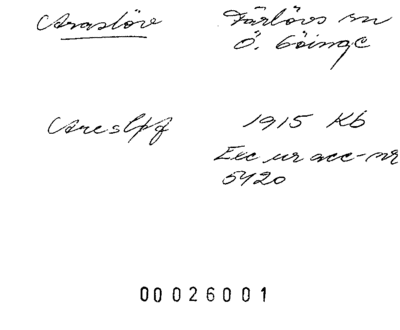 Araslöv Färlövs sn
Ö. Göinge
Areslöf 1915 Kb
Exc ur acc-nr
5420
00026001